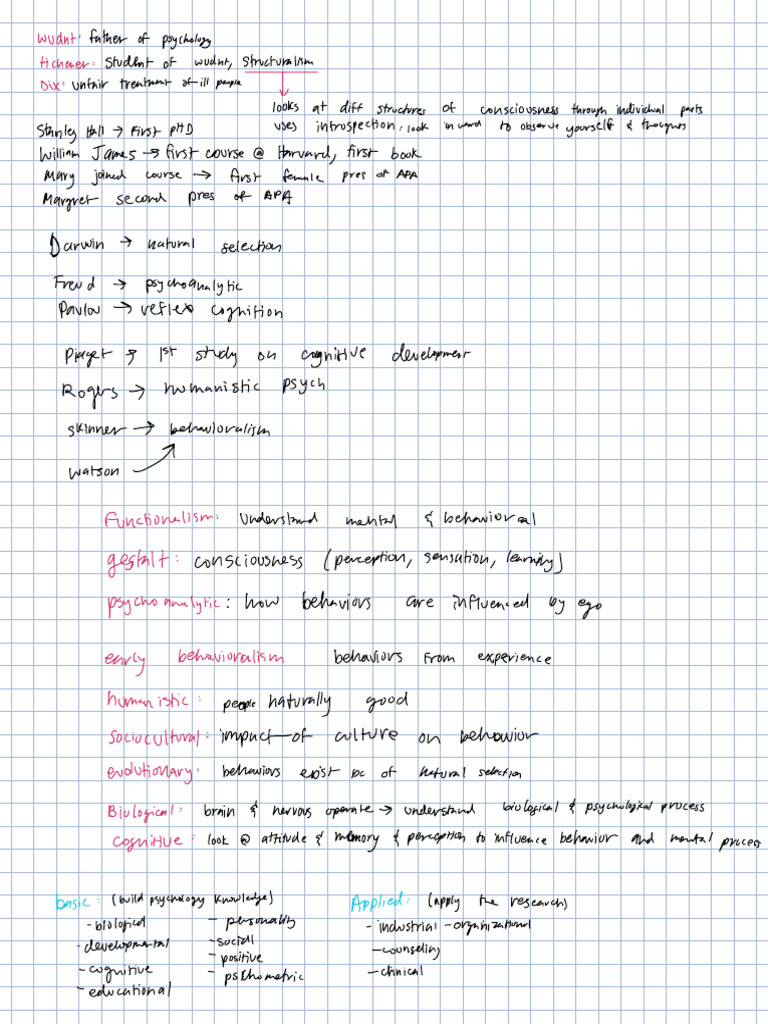 wudnt: father of psychology
tichener: student of wudnt, structuralism
Dix: unfair treatment of ill people
looks at diff structures of consciousness through individual parts
uses introspection: look inward to observe yourself & thoughts
Stanley Hall → First pHD
William James → first course @ Harvard, first book
Mary joined course → first female pres of APA
Margret second pres of APA
Darwin → natural selection
Freud → psychoanalytic
Pavlov → reflex cognition
Piaget → 1st study on cognitive development
Rogers → humanistic psych
skinner → behavioralism
watson
Functionalism: understand mental & behavioral
gestalt: consciousness (perception, sensation, learning)
psychoanalytic: how behaviors are influenced by ego
early behavioralism behaviors from experience
humanistic: people naturally good
sociocultural: impact of culture on behavior
evolutionary: behaviors exist bc of natural selection
Biological: brain & nervous operate → understand biological & psychological process
cognitive: look @ attitude & memory & perception to influence behavior and mental process
basic: (build psychology knowledge)
- biological
- developmental
- cognitive
- educational
- personality
- social
- positive
- psychometric
Applied: (apply the research)
- industrial - organizational
- counseling
- clinical